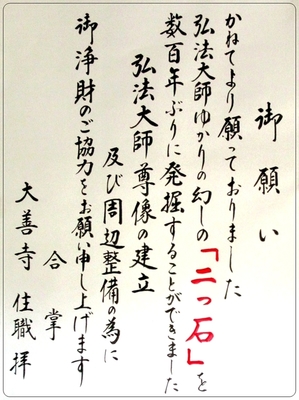 御願い
かねてより願っておりました
弘法大師ゆかりの幻しの「二つ石」を
数百年ぶりに発掘することができました
弘法大師尊像の建立
及び周辺整備の為に
御浄財のご協力をお願い申し上げます
合掌
大善寺 住職 拝